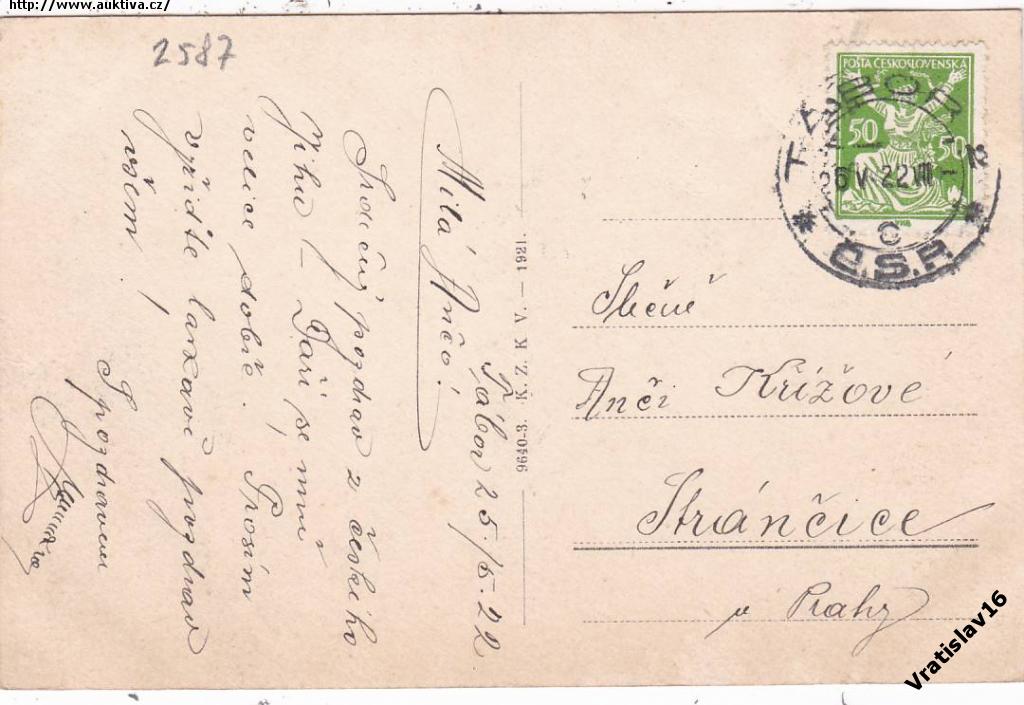 http://www.auktiva.cz/
2587
Tábor 25./5. 22
Milá Ančo!
Srdečný pozdrav z českého
jihu! – Daří se mně
velice dobře. Prosím
vyřiďte laskavě pozdrav
všem!
S pozdravem
9640-3. K. Z. K V. — 1921.
POŠTA ČESKOSLOVENSKÁ
50 50
TÁBOR
26 V. 22 VII -
* C *
Č.S.R.
Slečně
Anči Křížové
Strančice
u Prahy
Vratislav16